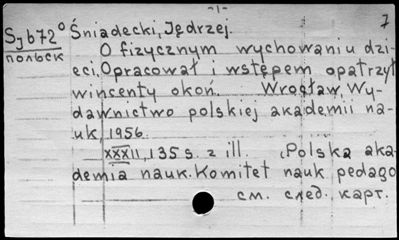 -1-
7
S₃b72⁰ Śniadecki, Jędrzej.
польск
O fizycznym wychowaniu dzi-
eci, Opracował i wstępem opatrzył
wincenty okoń. Wrocław, Wy-
dawnictwo polskiej akademii na-
uk, 1956.
XXXII, 135 s. z ill. (Polska aka-
demia nauk. Komitet nauk pedago
см. след. карт.